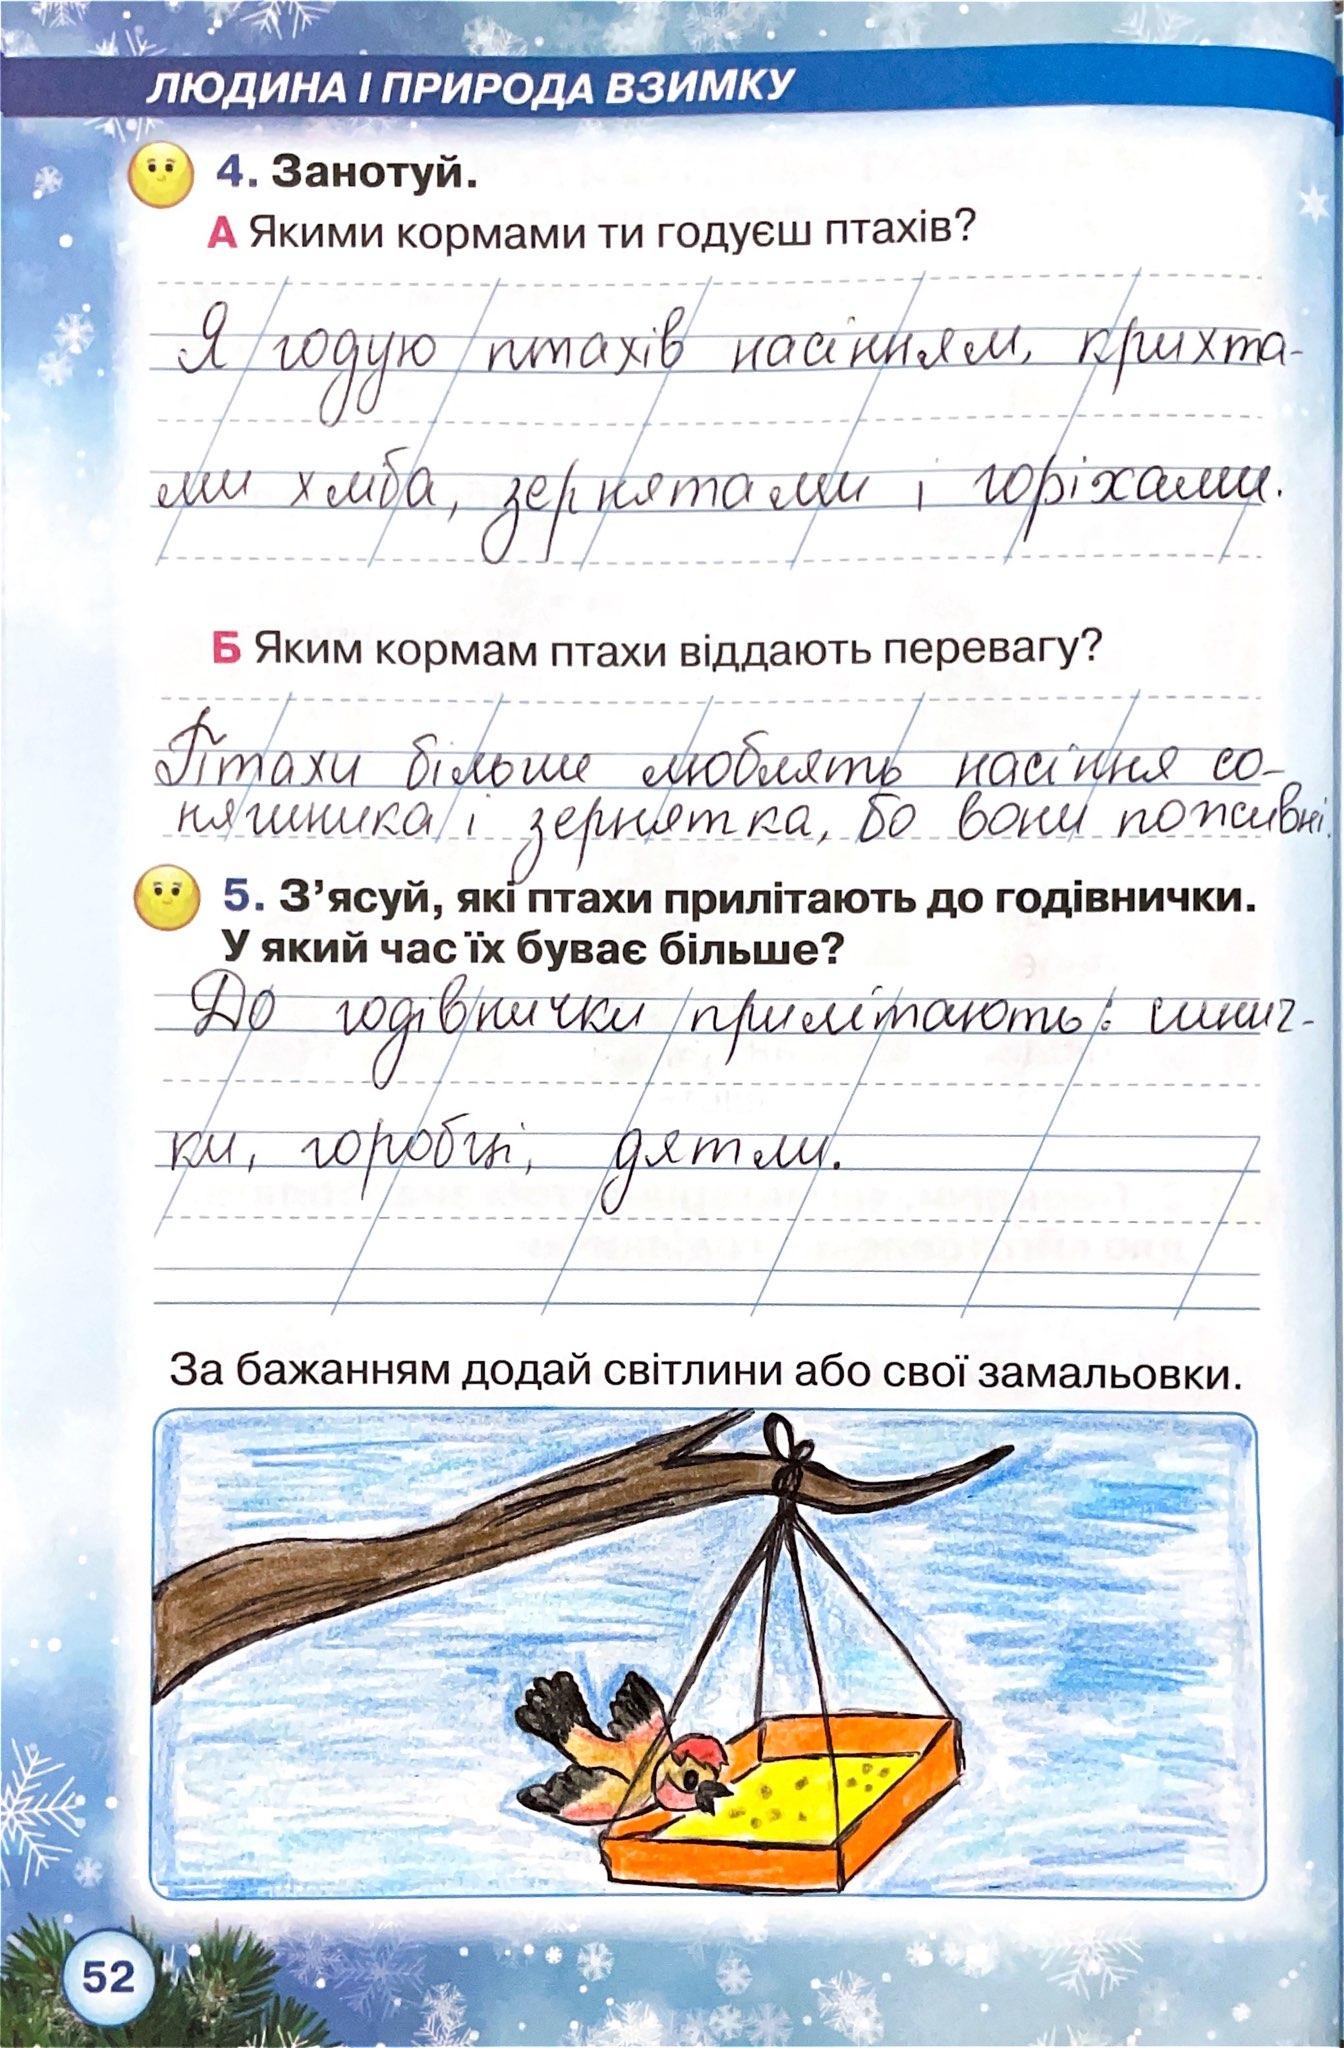 ЛЮДИНА І ПРИРОДА ВЗИМКУ
4. Занотуй.
А Якими кормами ти годуєш птахів?
Я годую птахів насінням, крихта-
ми хліба, зернятами і горіхами.
Б Яким кормам птахи віддають перевагу?
Птахи більше люблять насіння со-
няшника і зернятка, бо вони поживні.
5. З’ясуй, які птахи прилітають до годівнички.
У який час їх буває більше?
До годівнички прилітають: синич-
ки, горобці, дятли.
За бажанням додай світлини або свої замальовки.
52